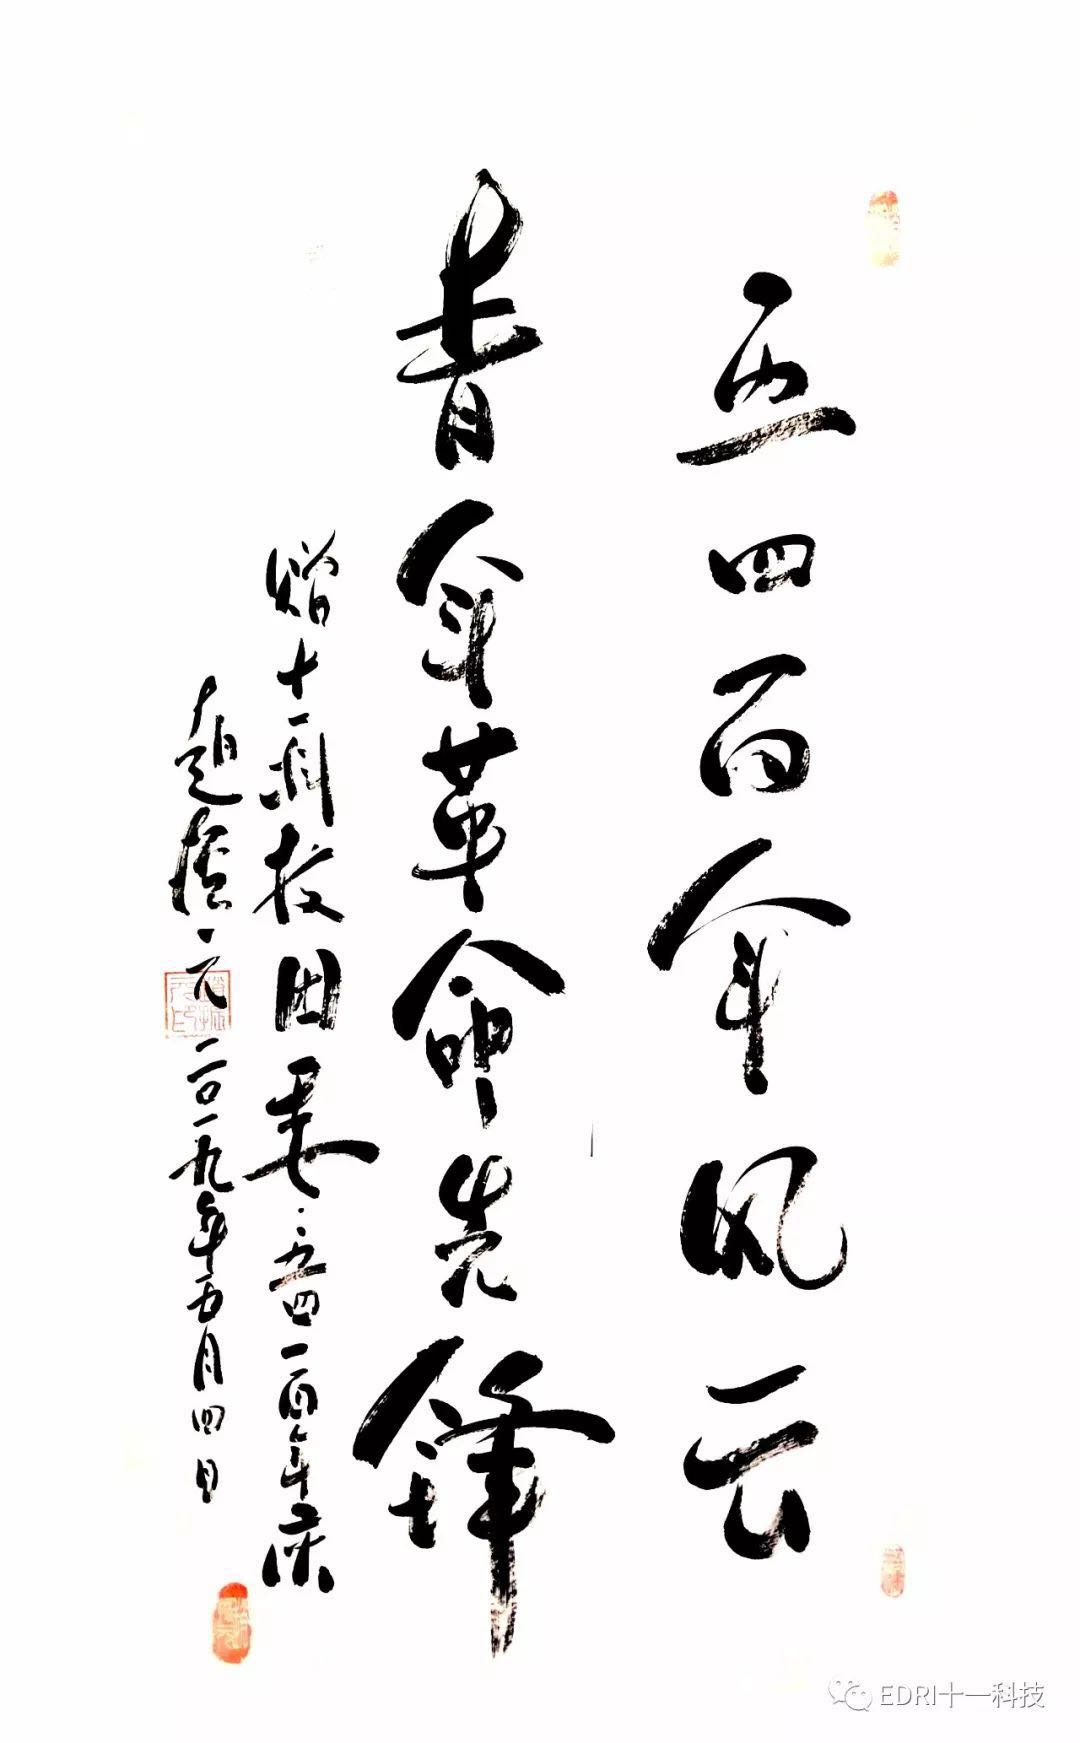 五四百年风云
青年革命先锋
赠十一科技团委：五四一百年庆
赵振元 二〇一九年五月四日
EDRI十一科技